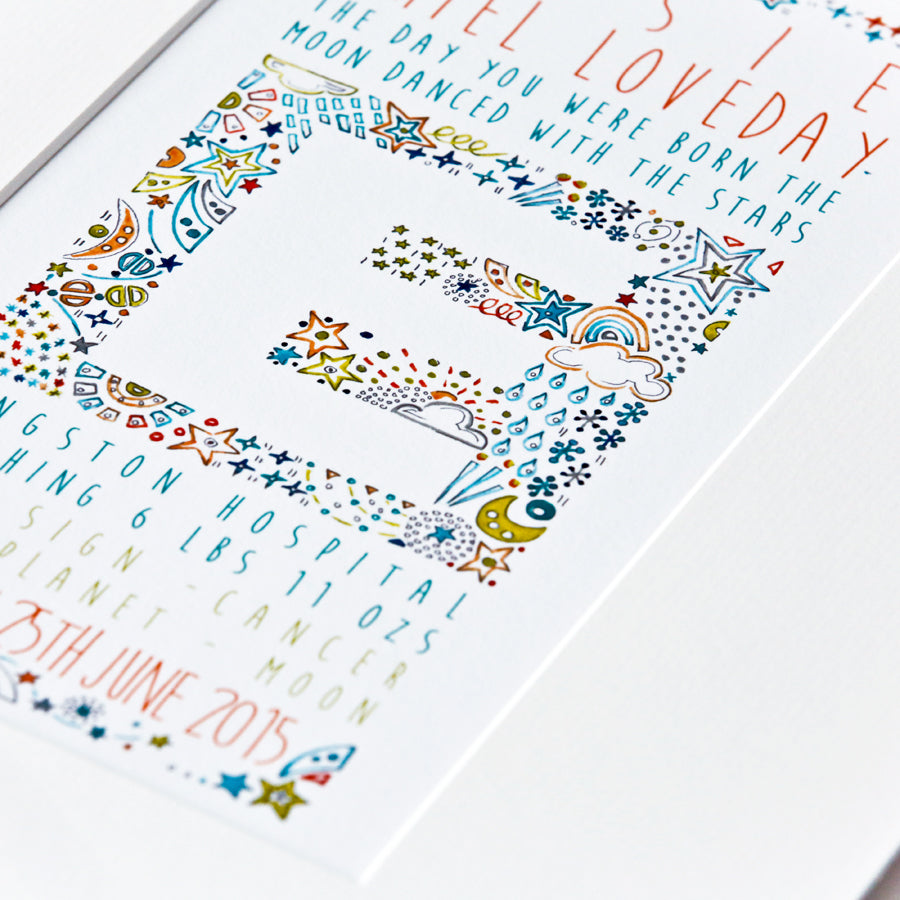 S I E
IEL LOVEDAY-
THE DAY YOU WERE BORN THE
MOON DANCED WITH THE STARS
NGSTON HOSPITAL
HING 6 LBS 11 OZS
SIGN - CANCER
PLANET - MOON
25TH JUNE 2015